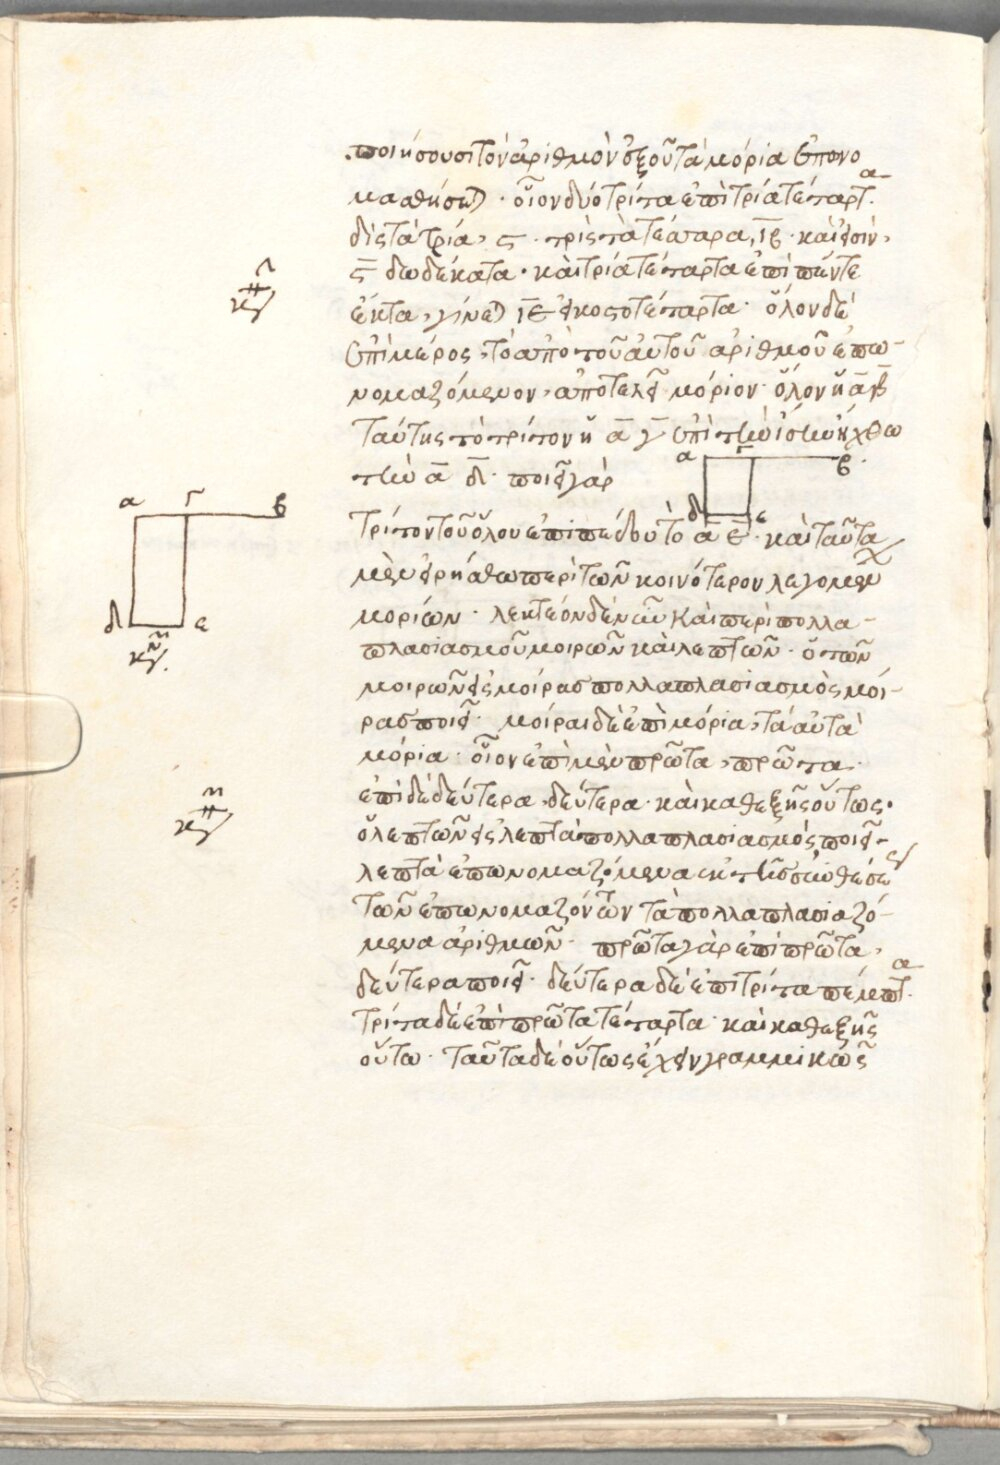 ποιήσουσι τὸν ἀριθμὸν ἐξ οὗ τὰ μόρια ἐπονο
μασθήσεται · οἷον δύο τρίτα ἐπὶ τρία τέταρτα
δὶς τὰ τρία, ϛ · τρὶς τὰ τέσσαρα, ιβ · καὶ εἰσὶν,
ϛ δωδέκατα · καὶ τρία τέταρτα ἐπὶ πέντε
ἕκτα, γίνεται ιε εἰκοστοτέταρτα · ὅλον δὲ
ἐπὶ μέρος, τὸ ἀπὸ τοῦ αὐτοῦ ἀριθμοῦ ἐπω-
νομαζόμενον, ἀποτελεῖ μόριον · ὅλον ἡ α β
ταύτης τὸ τρίτον ἡ α γ ἐπὶ τὴν ἴσην ἤχθω
τὴν α δ · ποιεῖ γὰρ
α γ β
δ ε
τρίτον τοῦ ὅλου ἐπιπέδου τὸ α ε · καὶ ταῦτα
μὲν εἰρήσθω περὶ τῶν κοινότερον λεγομένων
μορίων · λεκτέον δὲ νῦν καὶ περὶ πολλα-
πλασιασμοῦ μοιρῶν καὶ λεπτῶν · ὁ τῶν
μοιρῶν εἰς μοίρας πολλαπλασιασμὸς μοί-
ρας ποιεῖ · μοῖραι δὲ ἐπὶ μόρια, τὰ αὐτὰ
μόρια · οἷον ἐπὶ μὲν πρῶτα, πρῶτα ·
ἐπὶ δὲ δεύτερα, δεύτερα · καὶ καθεξῆς οὕτως ·
ὁ λεπτῶν εἰς λεπτὰ πολλαπλασιασμὸς, ποιεῖ
λεπτὰ ἐπωνομαζόμενα ἐκ τῆς συνθέσεως
τῶν ἐπωνομαζόντων τὰ πολλαπλασιαζό-
μενα ἀριθμῶν · πρῶτα γὰρ ἐπὶ πρῶτα,
δεύτερα ποιεῖ · δεύτερα δὲ ἐπὶ τρίτα πέμπτα ·
τρίτα δὲ ἐπὶ πρῶτα τέταρτα · καὶ καθεξῆς
οὕτω · ταῦτα δὲ οὕτως ἔχειν γραμμικῶς
α γ β
δ ε